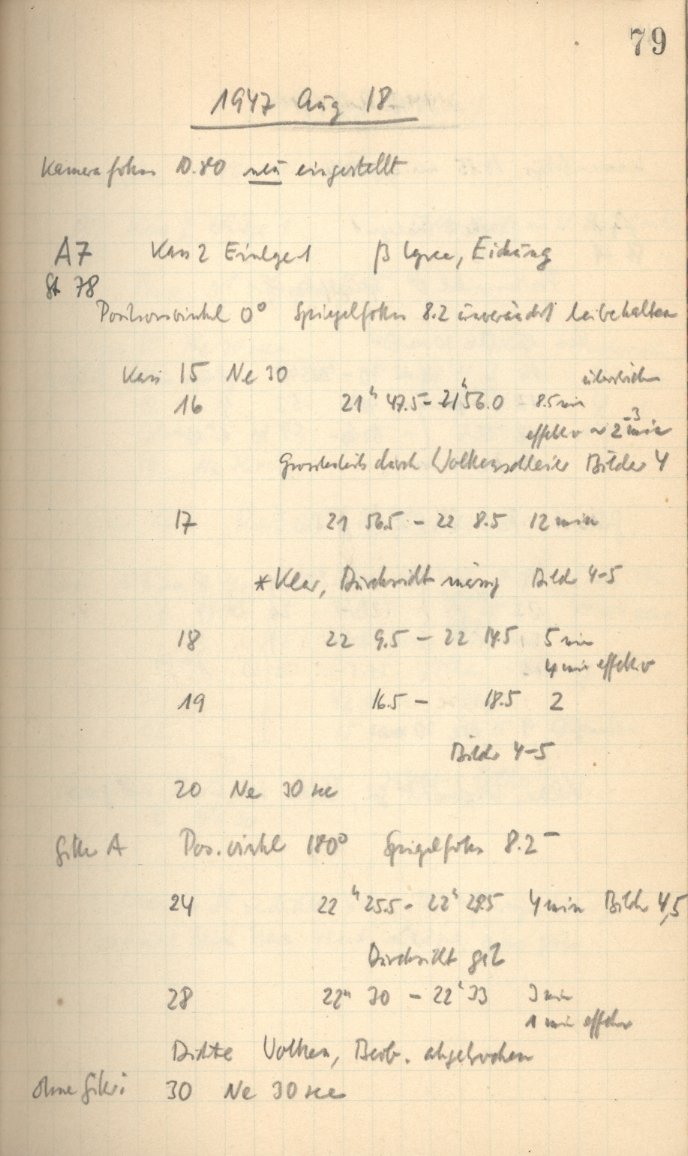 79
1947 Aug 18.
Kamerafokus 10.80 neu eingestellt
A7 Kass 2 Eingelegt β Lyrae, Eichung
St 78
Positionswinkel 0° Spiegelfokus 8.2 unverändert beibehalten
Kass 15 Ne 30
16 21ʰ 47.5 - 21ʰ 56.0 8.5 min
effektiv ~ 2-3 min
Grossenteils durch Wolkenschleier Bilder 4
17 21 56.5 - 22 8.5 12 min
*Klar, Durchsicht mässig Bilder 4-5
18 22 9.5 - 22 14.5 5 min
4 min effektiv
19 16.5 - 18.5 2
Bilder 4-5
20 Ne 30 sec
Gitter A Pos.winkel 180° Spiegelfokus 8.2-
24 22ʰ 25.5 - 22ʰ 29.5 4 min Bilder 4,5
Durchsicht gut
28 22ʰ 30 - 22ʰ 33 3 min
1 min effektiv
Dichte Wolken, Beob. abgebrochen
ohne Gitter 30 Ne 30 sec